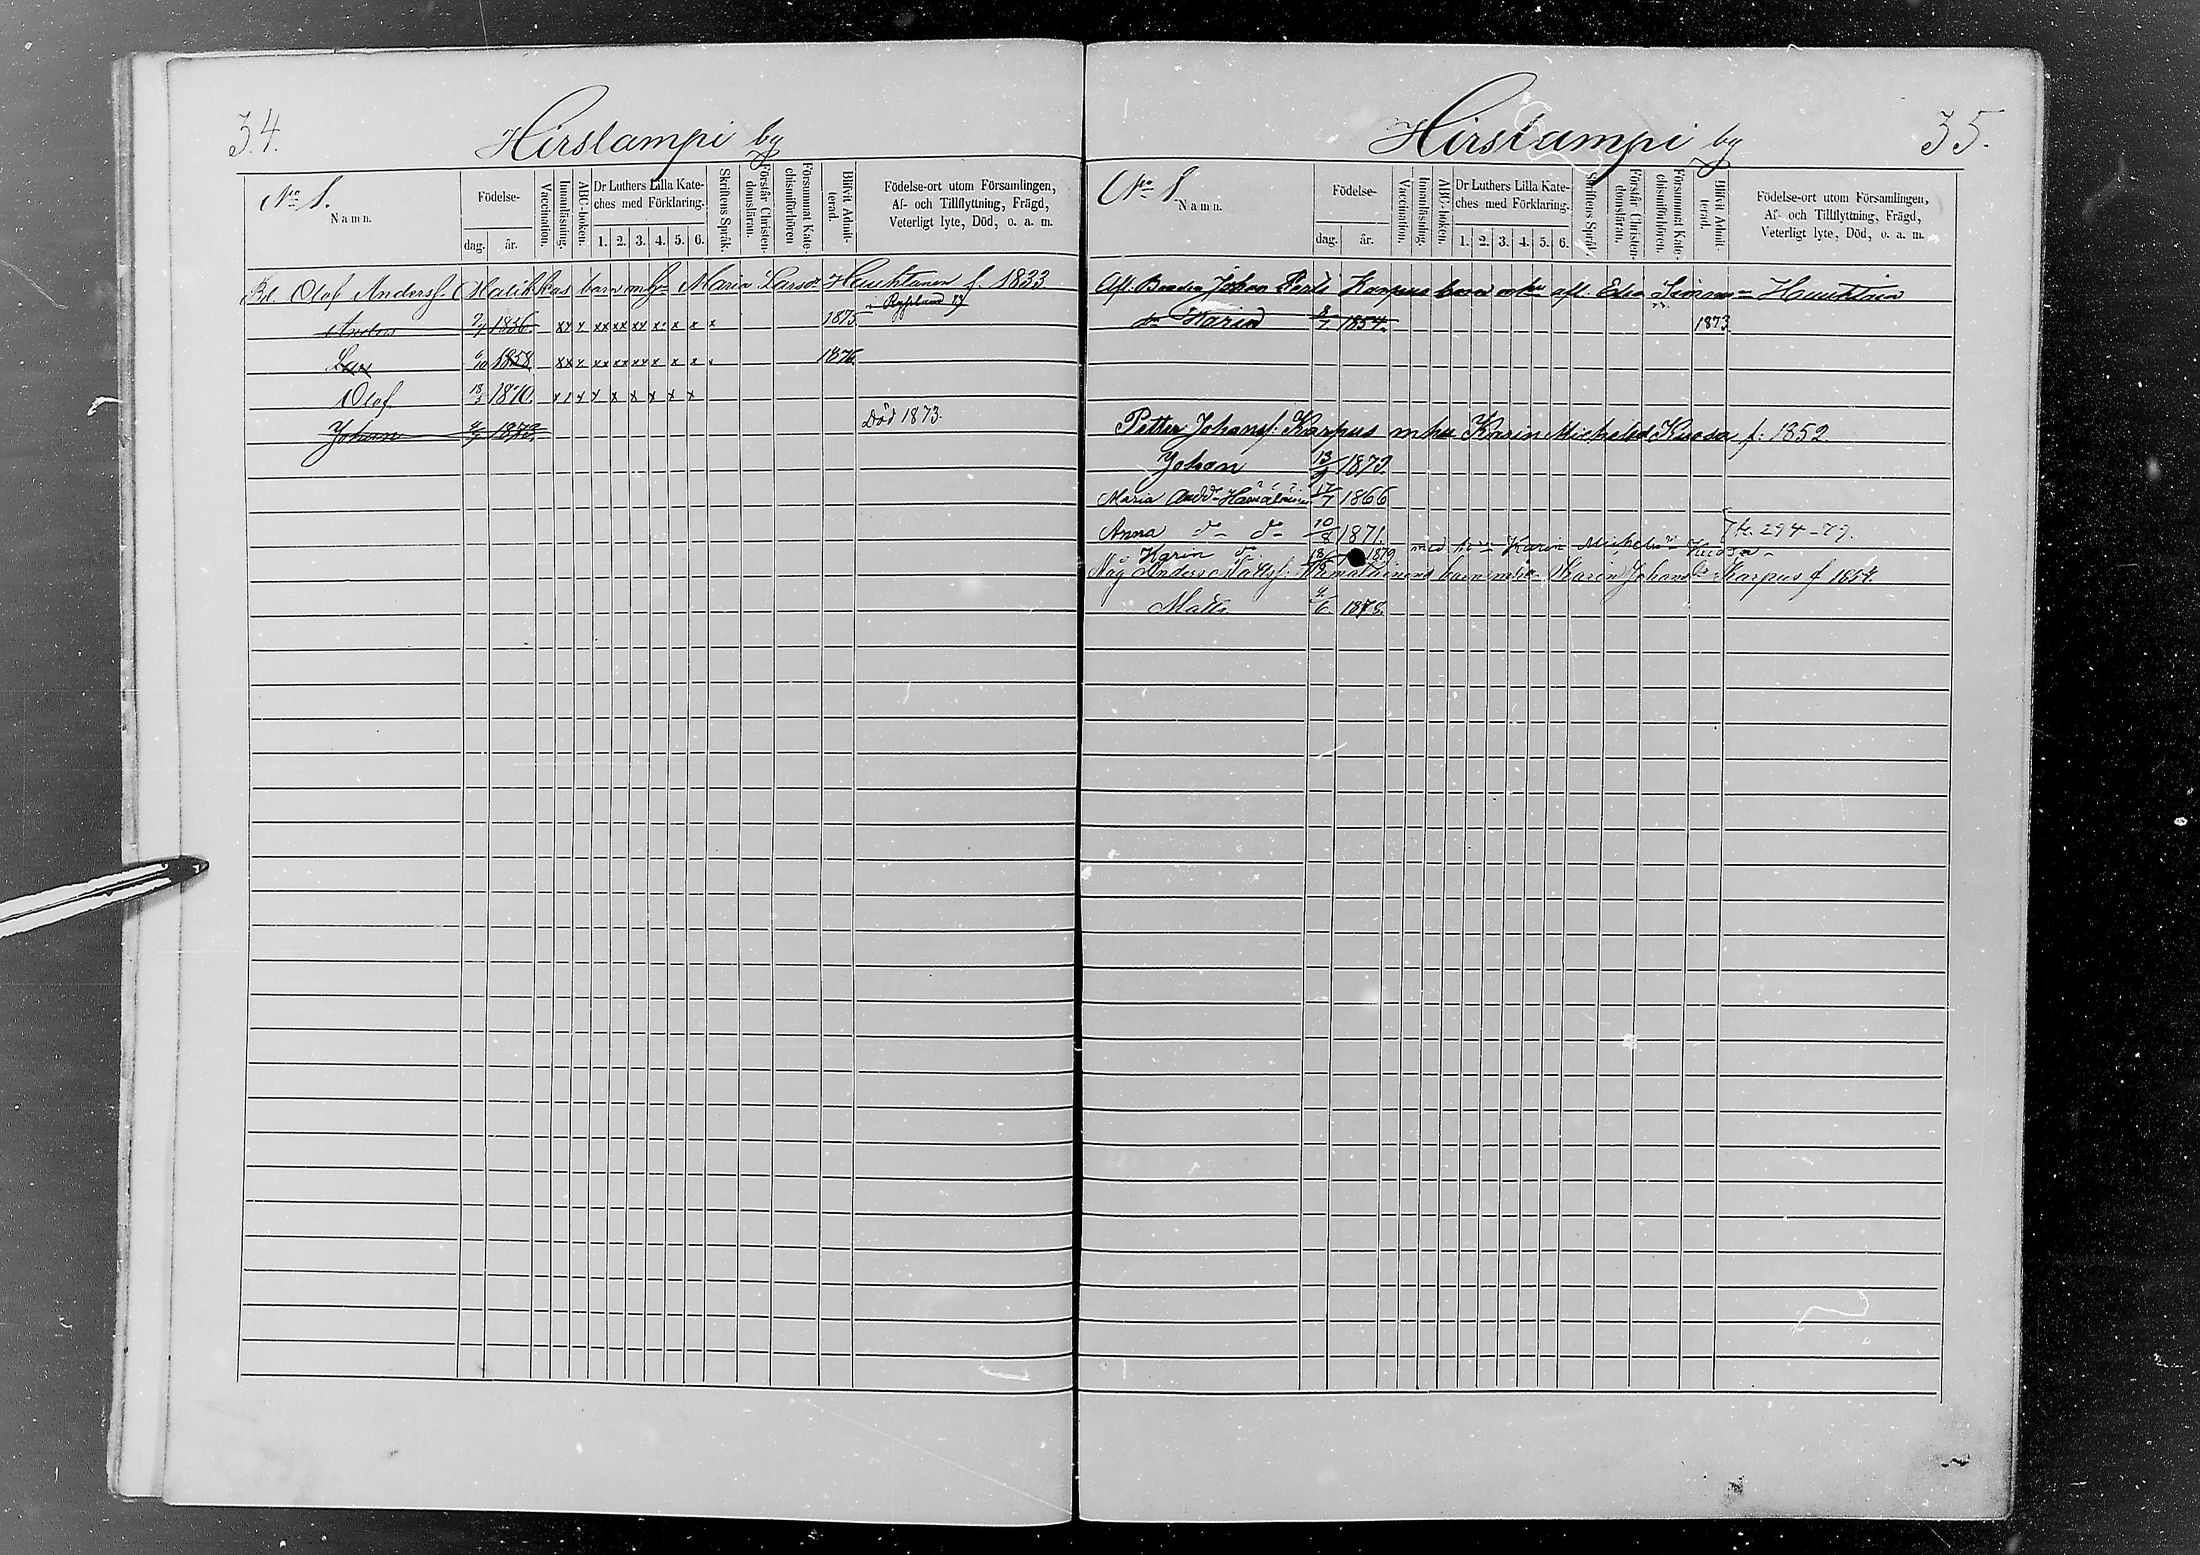 34.
Hirslampi by
No 1.
Namn.
Födelse-
dag.
år.
Vaccination.
Innanläsning.
ABC-boken.
Dr Luthers Lilla Kate-
ches med Förklaring.
1. 2. 3. 4. 5. 6.
Skriftens Språk.
Förstår Christen-
domsläran.
Försummat Kate-
chismiförhören
Blifvit Admit-
terad.
Födelse-ort utom Församlingen,
Af- och Tillflyttning, Frägd,
Veterligt lyte, Död, o. a. m.
Bd. Olof Andersf. Malikkas barn mhu Maria Larsdr f. 1833
Anders 1856. xx x xx xx xx x x x x 1875 Ryssland
Lars 1858 xx x xx xx xx x x x x 1876.
Olof 18/3 1870. x x x x x x x x x
Johan 1873. Död 1873.
35.
Hirslampi by
No 1.
Namn.
Födelse-
dag.
år.
Vaccination.
Innanläsning.
ABC-boken.
Dr Luthers Lilla Kate-
ches med Förklaring.
1. 2. 3. 4. 5. 6.
Skriftens Språk.
Förstår Christen-
domsläran.
Försummat Kate-
chismiförhören.
Blifvit Admit-
terad.
Födelse-ort utom Församlingen,
Af- och Tillflyttning, Frägd,
Veterligt lyte, Död, o. a. m.
Afl. Bonden Johan Karpus barn mhu afl. Simons
dr Karin 8/7 1854. 1873
Petter Johansf. Karpus mhu Karin Michelsd Kuosa f. 1852
Johan 13/9 1873.
Maria Andd 17/7 1866
Anna do do 10/8 1871. 294-79.
Karin do 1879 med Karin Michelsdr Kuosa
Måg Anders barn mhu Karin Johansdr Karpus f 1854.
Matts. 4/6 1878.